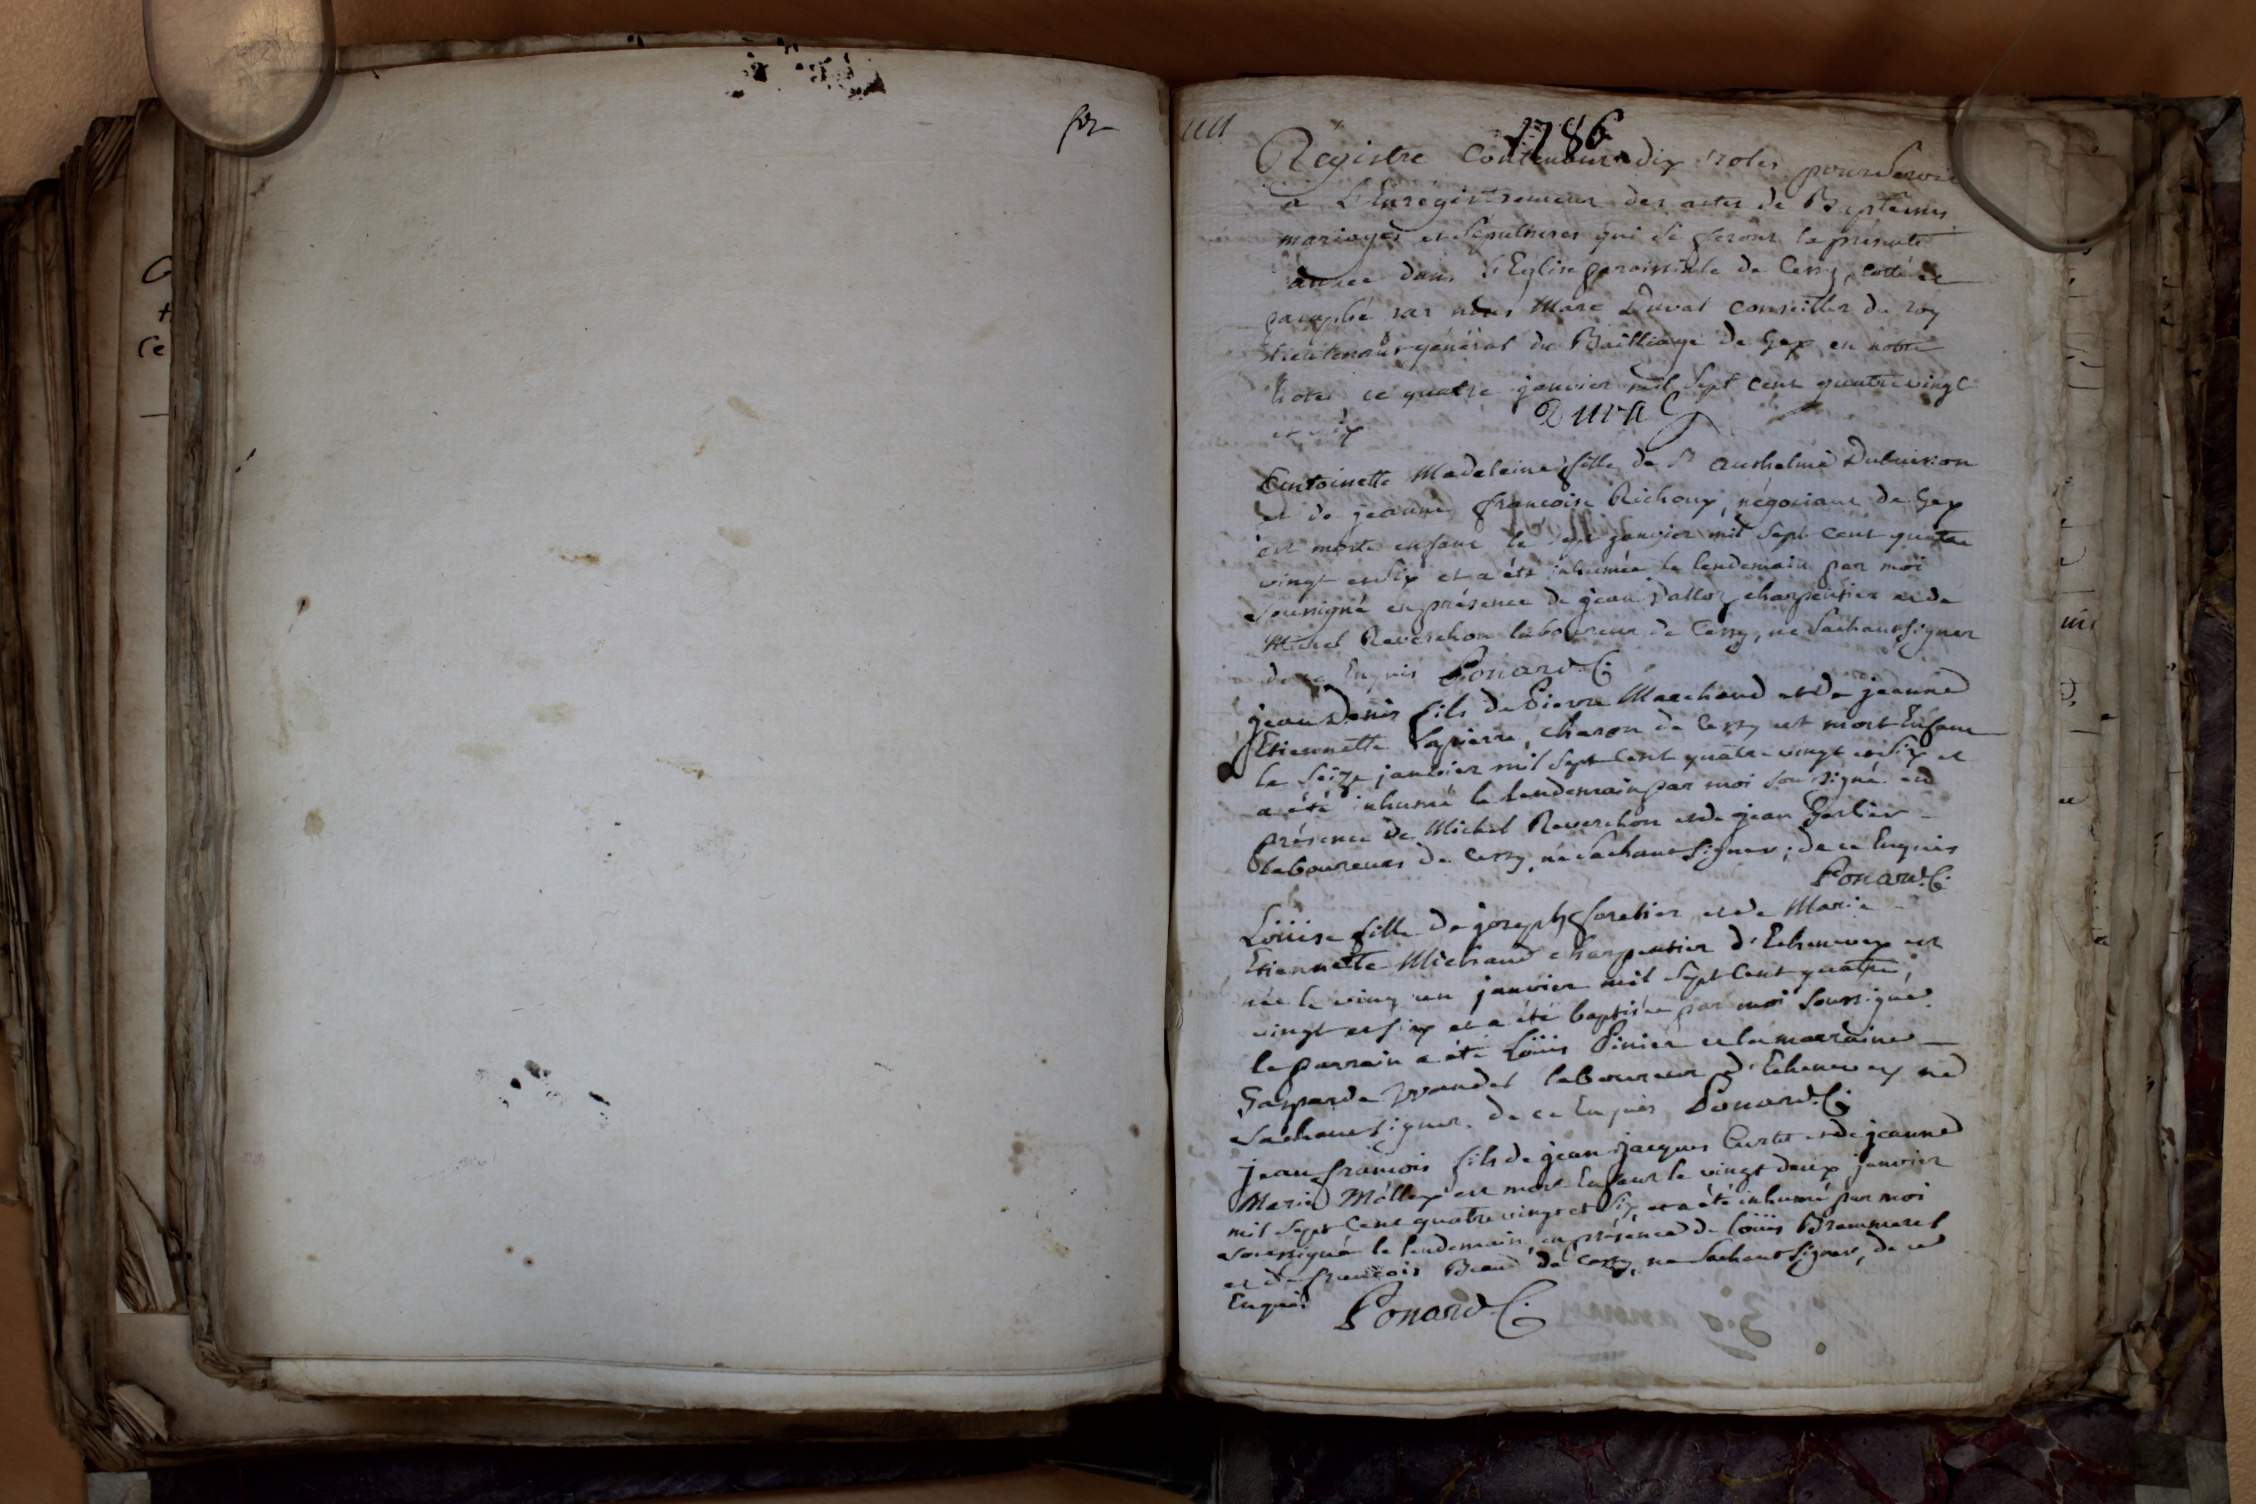 1786
Registre Contenant dix roles pour servir
a L'Enregistrement des actes de Baptêmes
mariages et sépultures qui se feront la présente
année dans l'Eglise paroissiale de Cessy, cotté et
paraphé par nous Marc Duval Conseiller du roy
Lieutenant général du Bailliage de Gex en notre
hotel ce quatre janvier mil sept cent quatre vingt
et six Duval
Antoinette Madelaine fille de Sr Anthelme Dubuisson
et de jeanne françoise Richoux, négociant de Gex
est morte enfant le sept janvier mil sept cent quatre
vingt et six et a été inhumée le lendemain par moi
soussigné en présence de jean Dalloz charpentier et de
Michel Reverchon laboureur de Cessy, ne sachant signer
de ce Enquis Ponard C.
jean Denis fils de Pierre Marchand et de jeanne
Etiennette Lapierre, charon de Cessy est mort Enfant
le seize janvier mil sept cent quatre vingt et six et
a été inhumé le lendemain par moi soussigné en
présence de Michel Reverchon et de jean Gerlier
laboureurs de Cessy, ne sachant signer; de ce Enquis
Ponard C.
Loüise fille de joseph foretier et de Marie
Etiennette Michaud charpentier d'Echenevex est
née le vingt un janvier mil sept cent quatre
vingt et six et a été baptisée par moi soussigné
le parrain a été Loüis Pinier et la marraine
Gasparde laboureur d'Echenevex ne
sachant signer. de ce Enquis Ponard C.
jean françois fils de jean jacques Curtet et de jeanne
Marie Mollex est mort Enfant le vingt deux janvier
mil sept cent quatre vingt et six, et a été inhumé par moi
soussigné le lendemain, en présence de Loüis Brammerel
et de françois Béaud de Cessy, ne sachant signer, de ce
Enquis Ponard C.